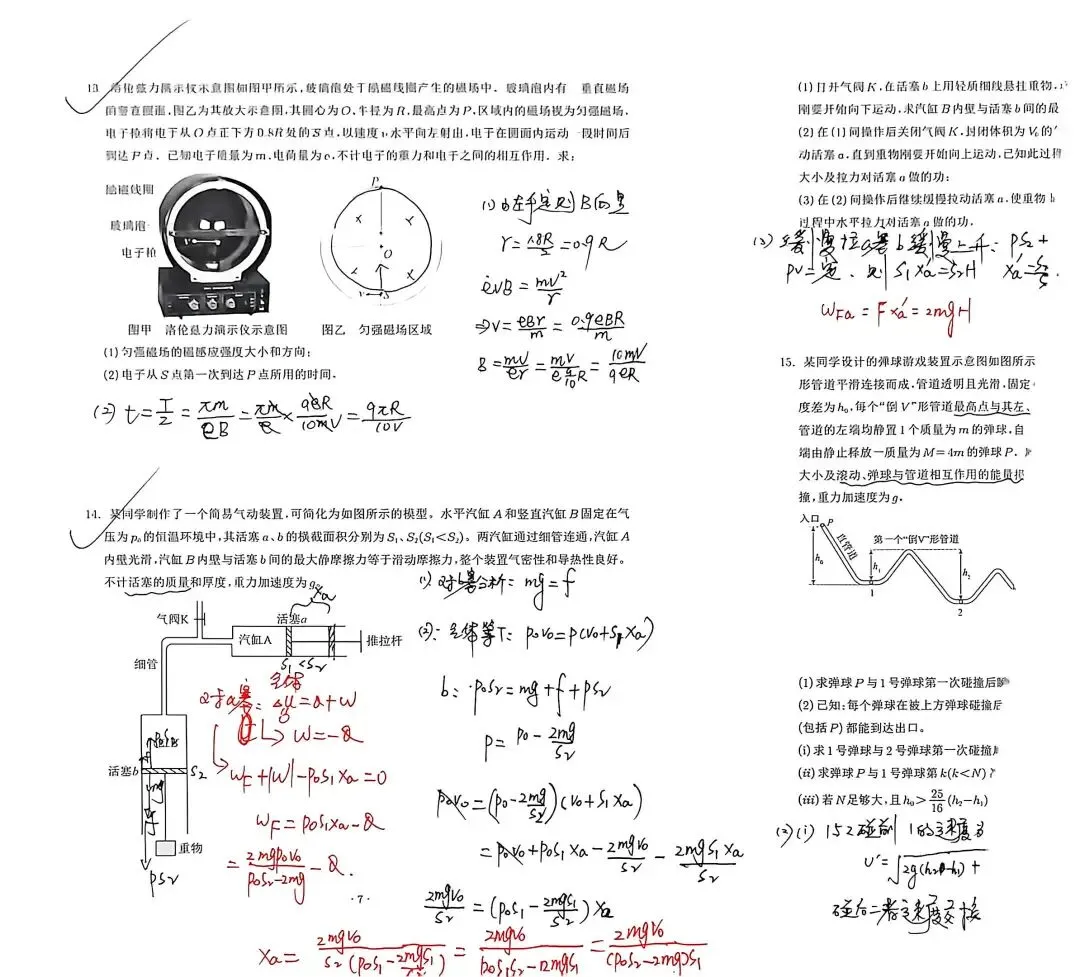 13. 洛伦兹力演示仪示意图如图甲所示，玻璃泡处于励磁线圈产生的磁场中。玻璃泡内有一垂直磁场
的竖直圆面，图乙为其放大示意图，其圆心为O，半径为R，最高点为P，区域内的磁场视为匀强磁场。
电子枪将电子从O点正下方0.8R处的S点，以速度v水平向左射出，电子在圆面内运动一段时间后
到达P点。已知电子质量为m、电荷量为e，不计电子的重力和电子之间的相互作用。求：
励磁线圈
玻璃泡
电子枪
P
O
v S
图甲 洛伦兹力演示仪示意图
图乙 匀强磁场区域
(1)匀强磁场的磁感应强度大小和方向；
(2)电子从S点第一次到达P点所用的时间。
(1) 由左手定则 B向里
r=1.8R/2=0.9R
evB=mv²/r
⇒v=eBr/m=0.9eBR/m
B=mv/er=mv/(e 9/10 R)=10mv/9eR
(2) t=T/2=πm/eB=πm/e×9eR/10mv=9πR/10v
14. 某同学制作了一个简易气动装置，可简化为如图所示的模型。水平汽缸A和竖直汽缸B固定在气
压为p₀的恒温环境中，其活塞a、b的横截面积分别为S₁、S₂(S₁<S₂)。两汽缸通过细管连通，汽缸A
内壁光滑，汽缸B内壁与活塞b间的最大静摩擦力等于滑动摩擦力，整个装置气密性和导热性良好。
不计活塞的质量和厚度，重力加速度为g。
气阀K
活塞a
xa
汽缸A
推拉杆
细管
S₁<S₂
活塞b
S₂
p₀S₂
f
mg
重物
pS₂
全体
ΔU=Q+W
0
↳ W=-Q
W_F+|W|-p₀S₁xa=0
W_F=p₀S₁xa-Q
=2mgp₀V₀/(p₀S₂-2mg)-Q.
(1) 对b塞分析：mg=f
(2)：全体等T：p₀V₀=p(V₀+S₁xa)
b：p₀S₂=mg+f+pS₂
p=p₀-2mg/S₂
p₀V₀=(p₀-2mg/S₂)(V₀+S₁xa)
=p₀V₀+p₀S₁xa-2mgV₀/S₂-2mgS₁xa/S₂
2mgV₀/S₂=(p₀S₁-2mgS₁/S₂)xa
xa=2mgV₀/S₂(p₀S₁-2mgS₁/S₂)=2mgV₀/(p₀S₁S₂-2mgS₁)=2mgV₀/(p₀S₂-2mg)S₁
·7·
(1)打开气阀K，在活塞b上用轻质细线悬挂重物，
刚要开始向下运动，求汽缸B内壁与活塞b间的最
(2)在(1)问操作后关闭气阀K，封闭体积为V₀的
动活塞a，直到重物刚要开始向上运动，已知此过程
大小及拉力对活塞a做的功；
(3)在(2)问操作后继续缓慢拉动活塞a，使重物
过程中水平拉力对活塞a做的功。
缓慢拉a塞b缓慢上升：pS₂+
pV=定、则 S₁xa'=S₂H xa'=
W_Fa=Fxa'=2mgH
15. 某同学设计的弹球游戏装置示意图如图所示
形管道平滑连接而成，管道透明且光滑，固定
度差为h₀，每个“倒V”形管道最高点与其左、
管道的左端均静置1个质量为m的弹球，自
端由静止释放一质量为M=4m的弹球P。
大小及滚动、弹球与管道相互作用的能量损
撞，重力加速度为g。
入口
P
第一个“倒V”形管道
直管道
h₀
h₁
h₂
1
2
(1)求弹球P与1号弹球第一次碰撞后瞬
(2)已知：每个弹球在被上方弹球碰撞后
(包括P)都能到达出口。
(i)求1号弹球与2号弹球第一次碰撞
(ii)求弹球P与1号弹球第k(k<N)
(iii)若N足够大，且h₀>25/16(h₂-h₁)
(2)(i) 1与2碰前 1的速度为
v'=√2g(h₂-h₁)+
碰后二者速度交换